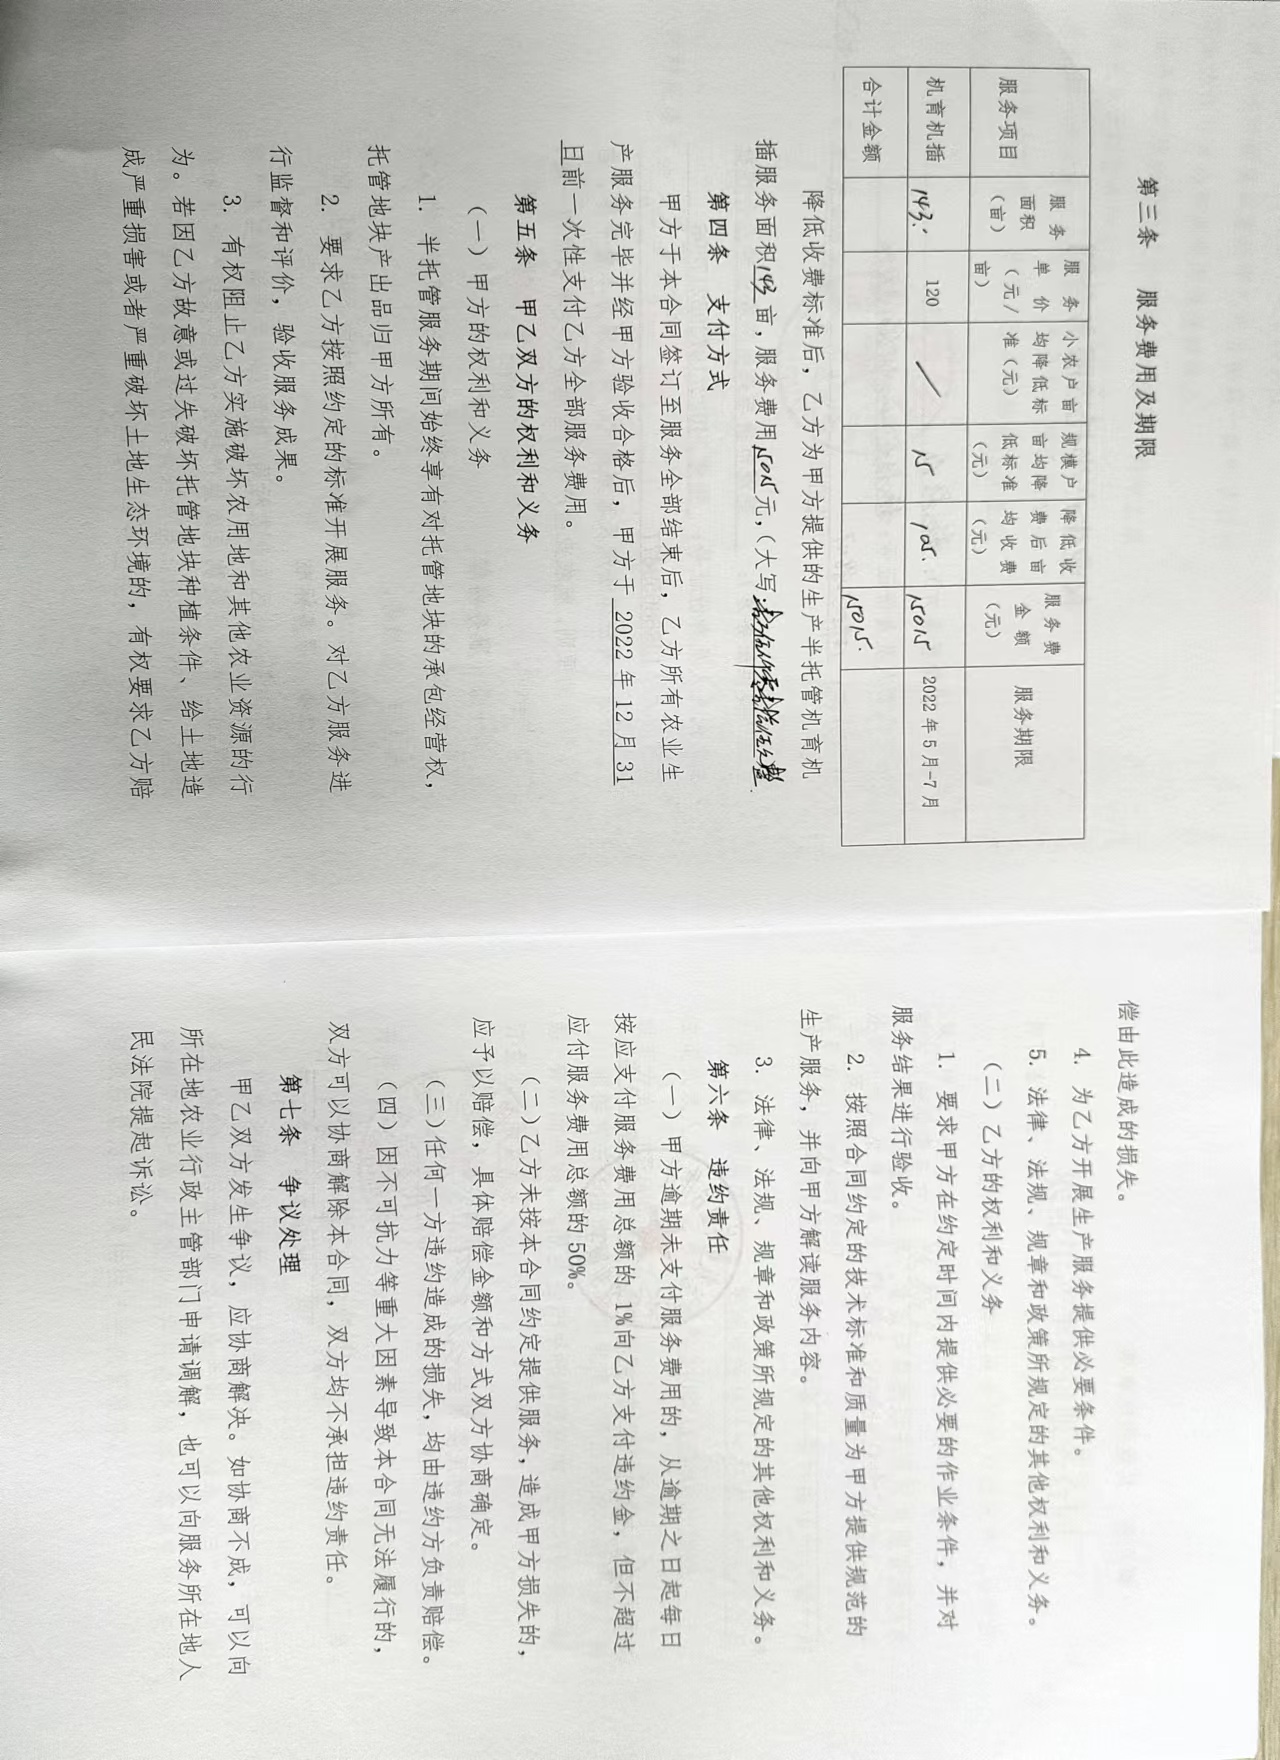 第三条 服务费用及期限
服务项目 服务面积（亩） 服务单价（元/亩） 小农户亩均降低标准（元） 规模户亩均降低标准（元） 降低收费后亩均收费（元） 服务费金额（元） 服务期限
机育机插 143. 120 / 15 105. 15015 2022年5月-7月
合计金额 15015.
降低收费标准后，乙方为甲方提供的生产半托管机育机
插服务面积143亩，服务费用15015元，（大写：
第四条 支付方式
甲方于本合同签订至服务全部结束后，乙方所有农业生
产服务完毕并经甲方验收合格后，甲方于 2022年12月31
日前一次性支付乙方全部服务费用。
第五条 甲乙双方的权利和义务
（一）甲方的权利和义务
1. 半托管服务期间始终享有对托管地块的承包经营权，
托管地块产出品归甲方所有。
2. 要求乙方按照约定的标准开展服务。对乙方服务进
行监督和评价，验收服务成果。
3. 有权阻止乙方实施破坏农用地和其他农业资源的行
为。若因乙方故意或过失破坏托管地块种植条件、给土地造
成严重损害或者严重破坏土地生态环境的，有权要求乙方赔
偿由此造成的损失。
4. 为乙方开展生产服务提供必要条件。
5. 法律、法规、规章和政策所规定的其他权利和义务。
（二）乙方的权利和义务
1. 要求甲方在约定时间内提供必要的作业条件，并对
服务结果进行验收。
2. 按照合同约定的技术标准和质量为甲方提供规范的
生产服务，并向甲方解读服务内容。
3. 法律、法规、规章和政策所规定的其他权利和义务。
第六条 违约责任
（一）甲方逾期未支付服务费用的，从逾期之日起每日
按应支付服务费用总额的 1%向乙方支付违约金，但不超过
应付服务费用总额的 50%。
（二）乙方未按本合同约定提供服务，造成甲方损失的，
应予以赔偿，具体赔偿金额和方式双方协商确定。
（三）任何一方违约造成的损失，均由违约方负责赔偿。
（四）因不可抗力等重大因素导致本合同无法履行的，
双方可以协商解除本合同，双方均不承担违约责任。
第七条 争议处理
甲乙双方发生争议，应协商解决。如协商不成，可以向
所在地农业行政主管部门申请调解，也可以向服务所在地人
民法院提起诉讼。